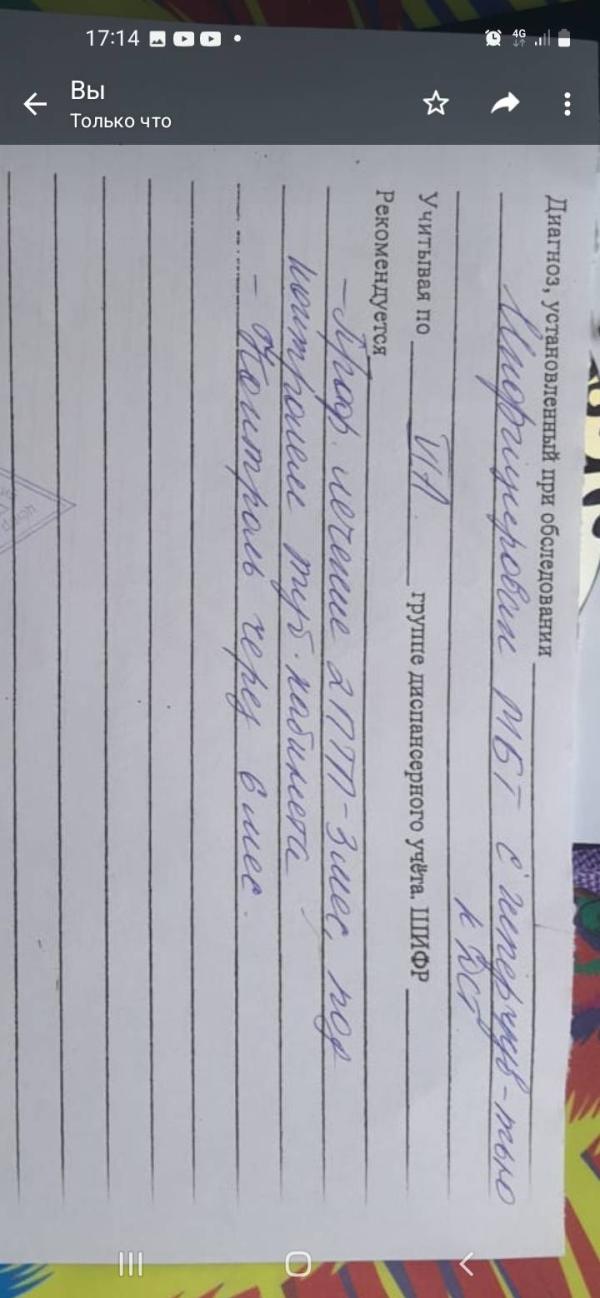 17:14
4G
Вы
Только что
Диагноз, установленный при обследовании
Инфицирован МБТ с гиперчув-тью
к Дст
Учитывая по VIA группе диспансерного учёта. ШИФР
Рекомендуется
- Проф. лечение 2ПТП-3мес, под
контролем туб. кабинета
- Контроль через 6 мес.